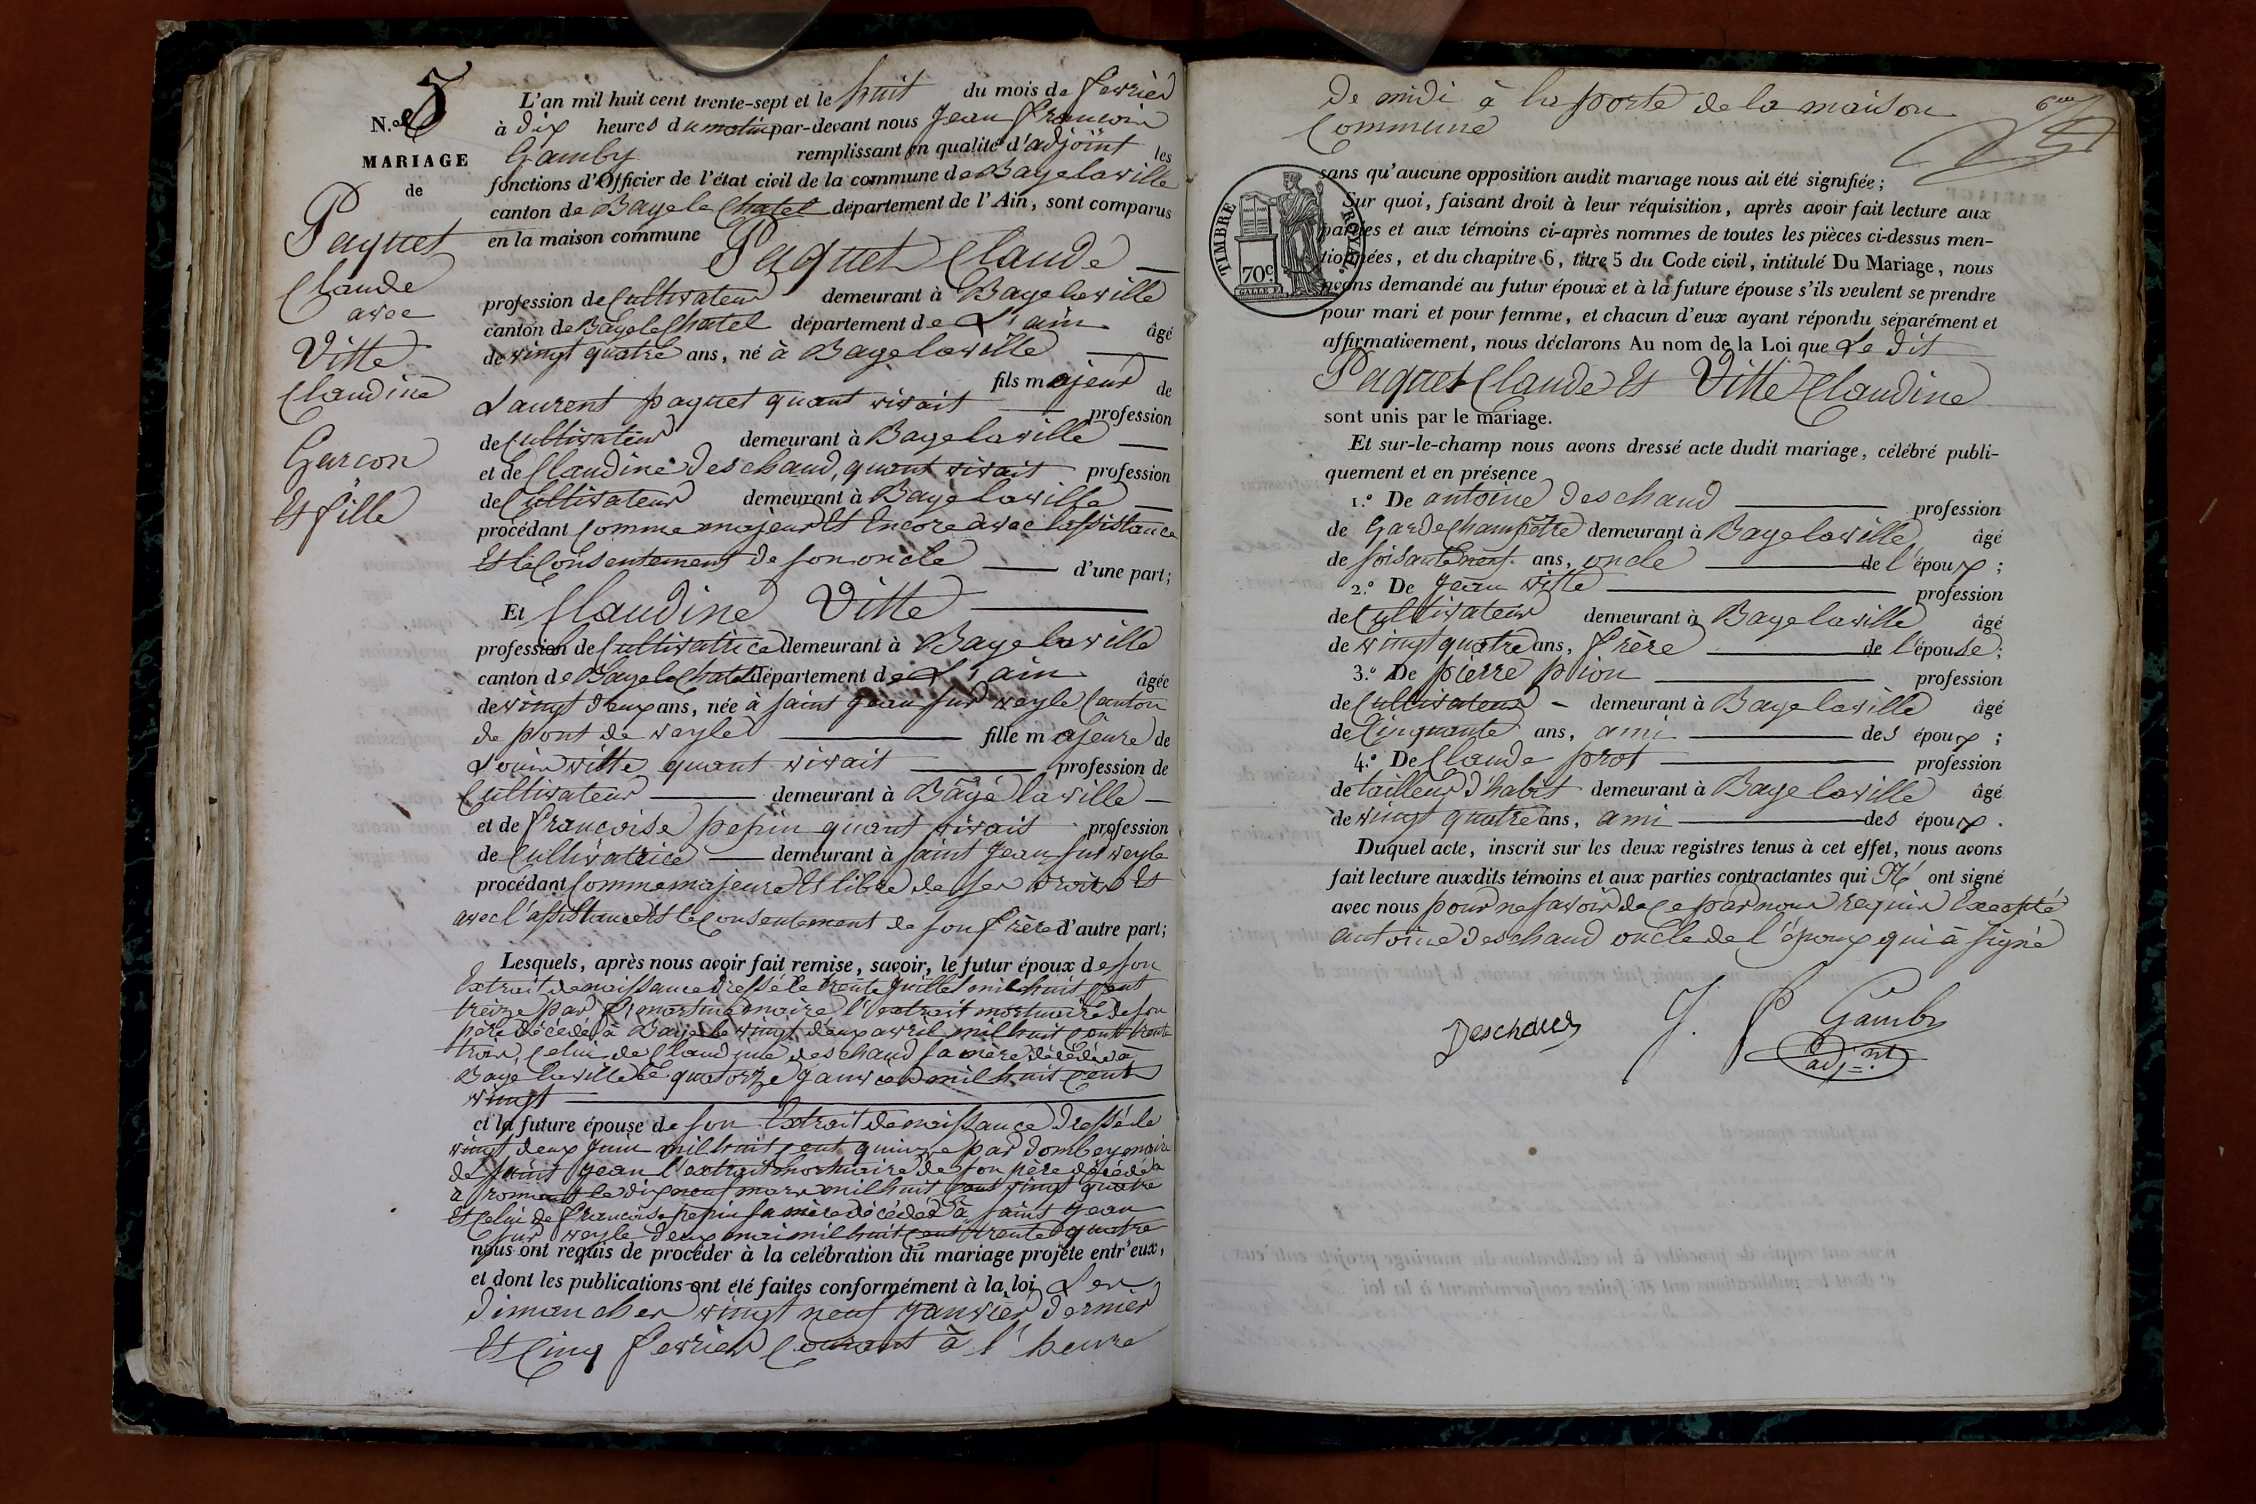 N.º 5
MARIAGE
de
Paquet
Claude
avec
Vitte
Claudine
Garçon
et fille
L'an mil huit cent trente-sept et le huit du mois de fevrier
à dix heures du matin par-devant nous Jean françois
Gamby remplissant en qualité d'adjoint les
fonctions d'Officier de l'état civil de la commune de Bagelaville
canton de Bage le Chatel département de l'Ain, sont comparus
en la maison commune Paquet Claude
profession de Cultivateur demeurant à Bagelaville
canton de Bage le Chatel département de L'ain âgé
de vingt quatre ans, né à Bage laville
fils majeur de
Laurent paquet quant vivait profession
de Cultivateur demeurant à Bage laville
et de Claudine deschaud, quant vivait profession
de Cultivateur demeurant à Bage laville
procédant Comme majeur et Encore avec lassistance
et le Consentement de son oncle d'une part;
Et Claudine Vitte
profession de Cultivatrice demeurant à Bage laville
canton de Bage le Chatel département de L'ain âgée
de vingt deux ans, née à saint Jean sur veyle Canton
de pont de veyle fille majeure de
Louis vitte quant vivait profession de
Cultivateur demeurant à Bâgé la ville
et de francoise pepin quant vivais profession
de Cultivatrice demeurant à saint Jean sur veyle
procédant Comme majeure et libre de ses droits et
avec l'assistance et le Consentement de son frère d'autre part;
Lesquels, après nous avoir fait remise, savoir, le futur époux de son
Extrait de naissance dressé le trente Juillet mil huit cent
treize par maire l'extrait mortuaire de son
père décédé à Bage le vingt deux avril mil huit cent trente
trois, Celui de Claudine deschaud sa mère décédée à
Bage laville le quatorze Janvier mil huit cent
vingt
et la future épouse de son Extrait de naissance dressé le
vingt deux Juin mil huit cent quinze par dombey maire
de saint Jean l'extrait mortuaire de son père décédé
à le dix neuf mars mil huit cent vingt quatre
et Celui de francoise pepin sa mère décédée à saint Jean
sur veyle deux mai mil huit cent trente quatre
nous ont requis de procéder à la celébration du mariage projeté entr'eux,
et dont les publications ont été faites conformément à la loi Les
dimanches vingt neuf Janvier dernier
et Cinq fevrier Courant à l'heure
De midi à la porte de la maison
Commune
TIMBRE ROYAL.
70c
sans qu'aucune opposition audit mariage nous ait été signifiée;
Sur quoi, faisant droit à leur réquisition, après avoir fait lecture aux
parties et aux témoins ci-après nommes de toutes les pièces ci-dessus men-
tionnées, et du chapitre 6, titre 5 du Code civil, intitulé Du Mariage, nous
avons demandé au futur époux et à la future épouse s'ils veulent se prendre
pour mari et pour femme, et chacun d'eux ayant répondu séparément et
affirmativement, nous déclarons Au nom de la Loi que Le dit
Paquet Claude et Vitte Claudine
sont unis par le mariage.
Et sur-le-champ nous avons dressé acte dudit mariage, célébré publi-
quement et en présence
1.º De antoine deschaud profession
de Garde Champêtre demeurant à Bage laville âgé
de soisante neuf ans, oncle de l'époux;
2.º De Jean vitte profession
de Cultivateur demeurant à Bage laville âgé
de vingt quatre ans, frère de l'épouse;
3.º De pierre pion profession
de Cultivateur demeurant à Bage laville âgé
de Cinquante ans, ami des époux;
4.º De Claude prost profession
de tailleur d'habit demeurant à Bage laville âgé
de vingt quatre ans, ami des époux.
Duquel acte, inscrit sur les deux registres tenus à cet effet, nous avons
fait lecture auxdits témoins et aux parties contractantes qui N'ont signé
avec nous pour ne savoir de ce par nous requis Excepté
antoine deschaud oncle de l'époux qui à signé
Deschaud J. f Gamby
adj.nt